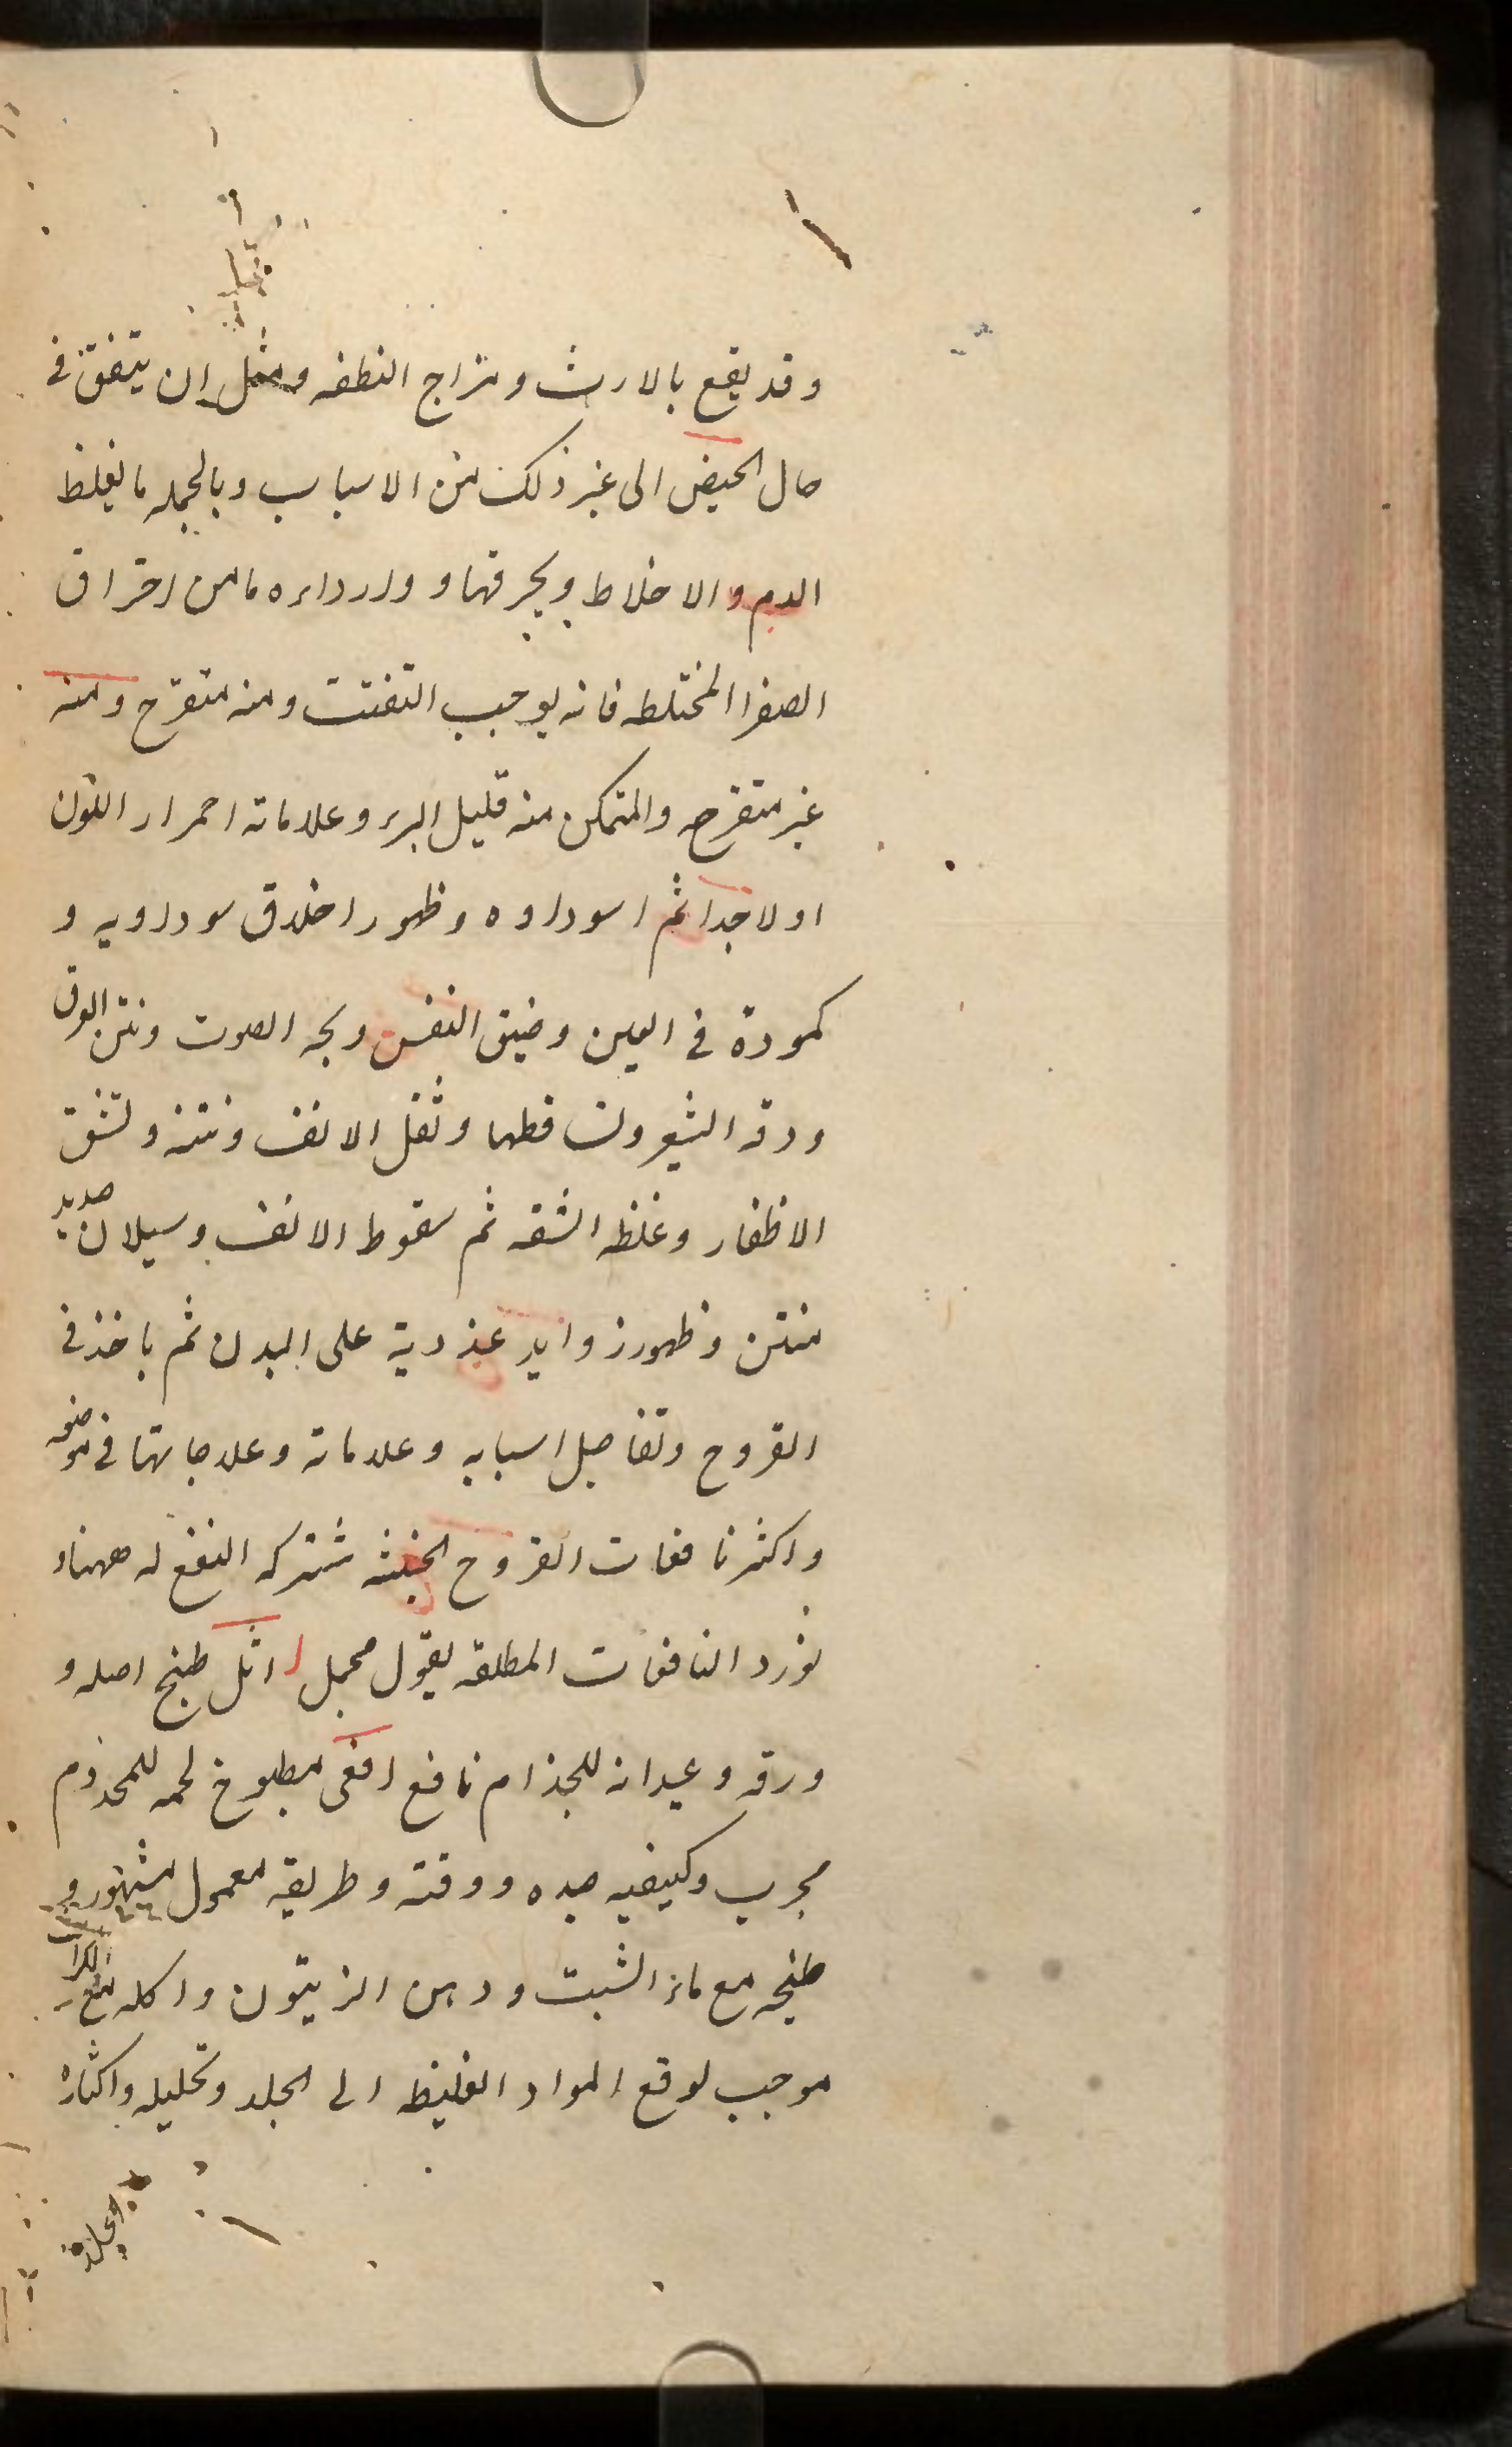 وقد يقع بالارث ومزاج النطفه ومثل ان يتفق في
حال الحيض الى غير ذلك من الاسباب وبالجمله ما يغلظ
الدم والاخلاط ويحرقها و وارداءه ما من احتراق
الصفرا المختلطه فانه يوجب التفتت ومنه متقرح ومنه
غير متقرح والمتمكن منه قليل البرء وعلاماته احمرار اللون
اولا جدا ثم اسوداده وظهور اخلاق سوداويه و
كمودة في العين وضيق النفس وبحه الصوت ونتن العرق
ودقه الشعر وتساقطها وثقل الانف ونتنه وتشقق
الاظفار وغلظ الشفه ثم سقوط الانف وسيلان صديد
منتن وظهور زوايد غددية على البدن ثم ياخذ في
القروح وتفاصيل اسبابه وعلاماته وعلاجاتها في موضعه
واكثر نافعات القروح الخبيثه مشتركه النفع له ههنا و
نورد النافعات المطلقه بقول مجمل اثل طبخ اصله و
ورقه وعيدانه للجذام نافع افعى مطبوخ لحمه للمجذوم
مجرب وكيفيه صيده ووقته وطريقه معمول مشهور و
طبخه مع ماء الشبت ودهن الزيتون واكله مع الكراث
موجب لدفع المواد الغليظه الى الجلد وتحليله واكثاره